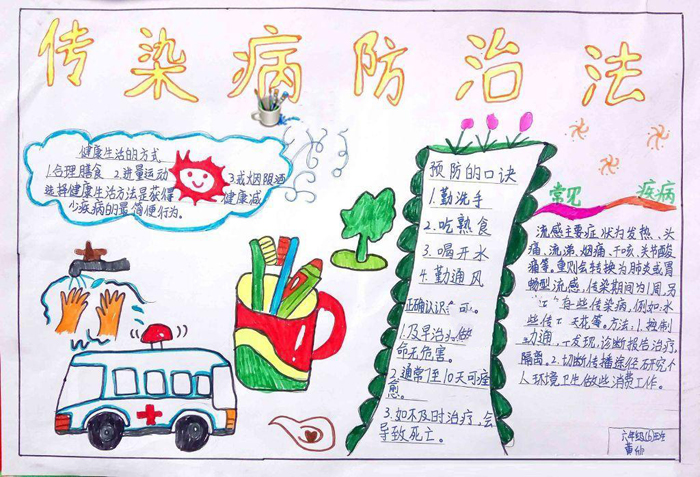 传染病防治法
健康生活的方式
1.合理膳食 2.适量运动 3.戒烟限酒
选择健康生活方法是获得健康减
少疾病的最简便行为。
预防的口诀
1.勤洗手
2.吃熟食
3.喝开水
4.勤通风
正确认识
1.及早治
命无危害。
2.通常1至10天可痊
愈。
3.如不及时治疗,会
导致死亡。
常见 疾病
流感主要症状为发热、头
痛、流涕、咽痛、干咳、关节酸
痛等。重则会转换为肺炎或胃
肠型流感。传染期间为1周,另
些传染病,例如:水
天花等。方法:1.控制
发现,诊断报告治疗,
隔离。2.切断传播途径研究个
人环境卫生做些消费工作。
六年级
黄仙